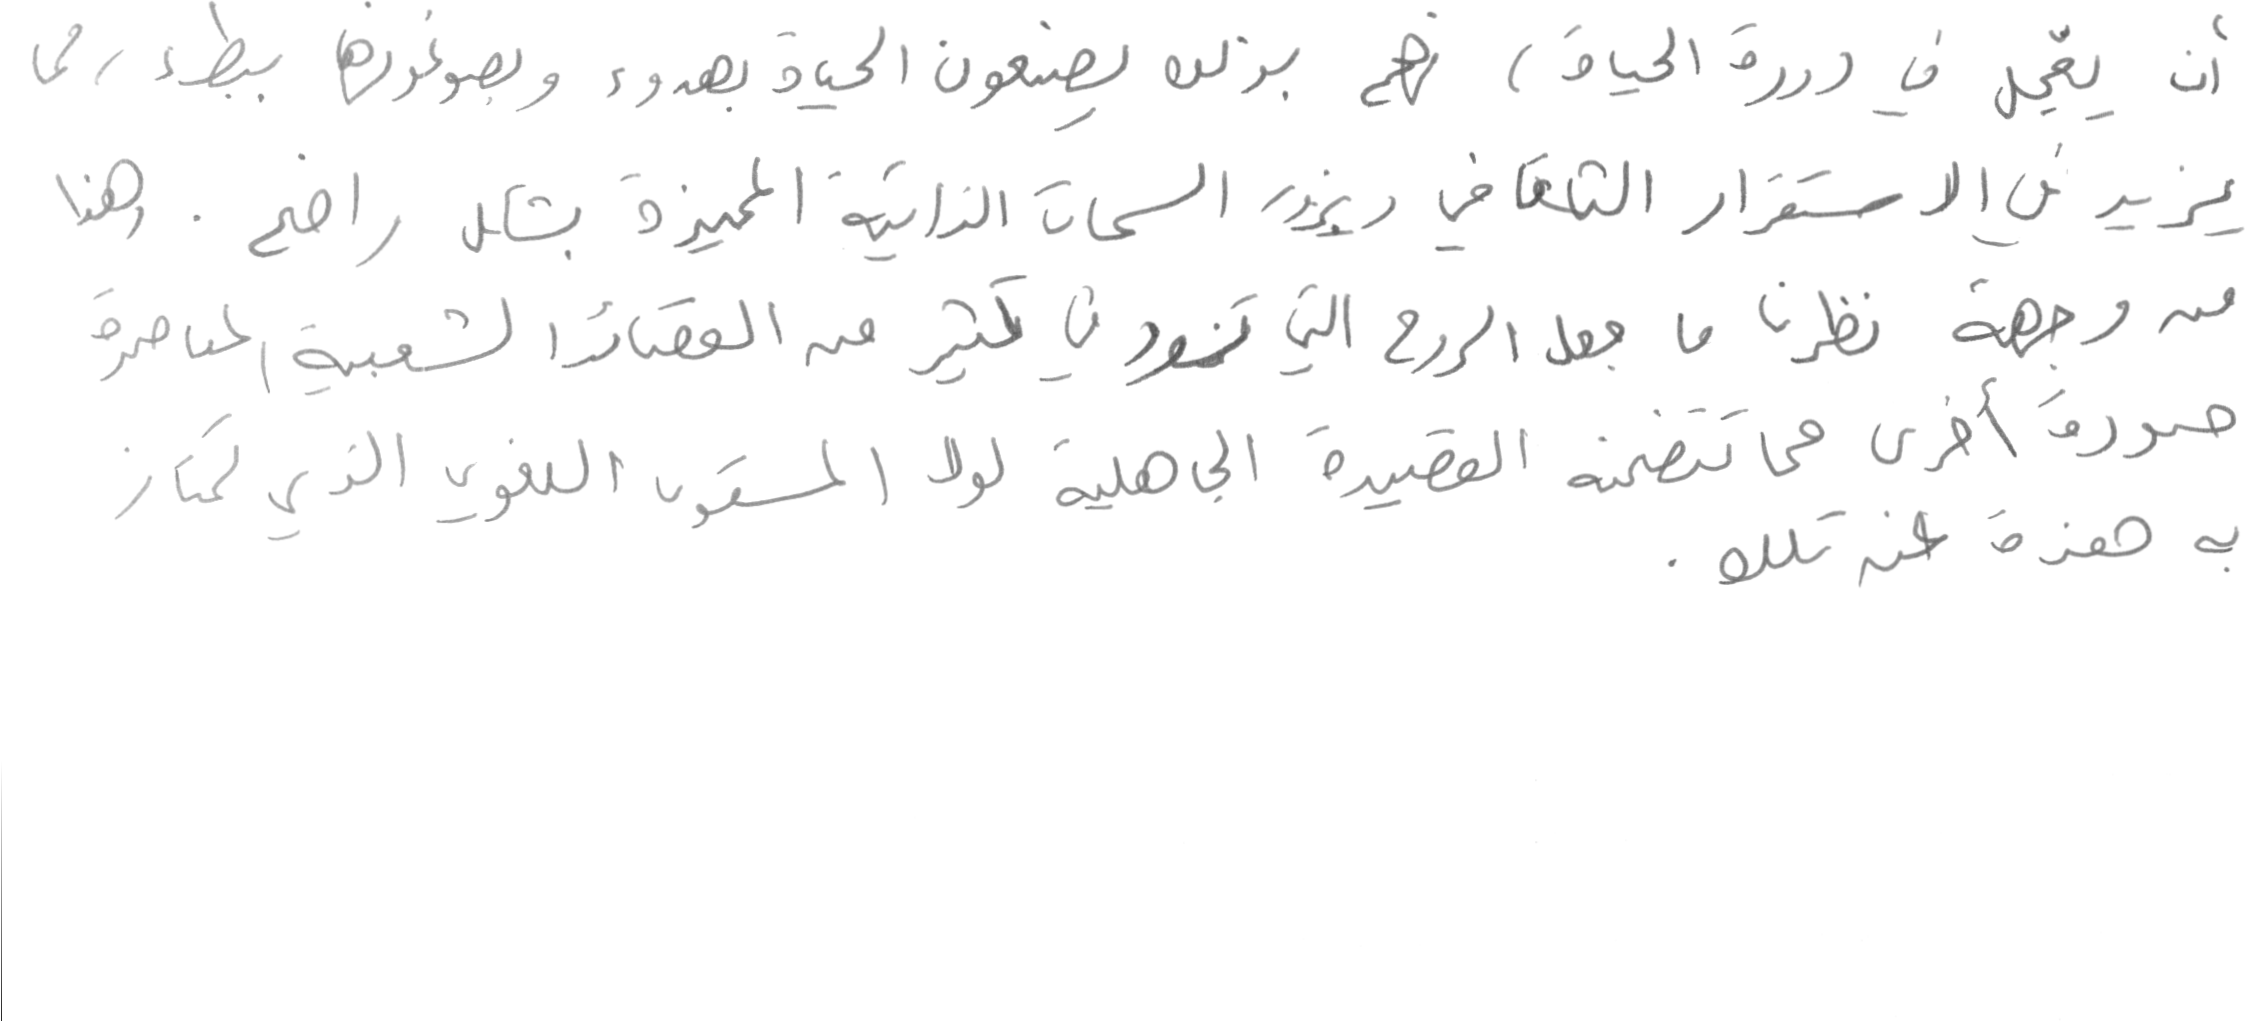 أن يعجّل في دورة الحياة، فهم بذلك يصنعون الحياة بهدوء ويصوغونها ببطء، مما
يزيد في الاستقرار الثقافي ويجذر السمات الذاتية المميزة بشكل واضح. وهذا
من وجهة نظرنا ما جعل الروح التي تسود في كثير من القصائد الشعبية المعاصرة
صورة أخرى مما تتضمنه القصيدة الجاهلية لولا المستوى اللغوي الذي تمتاز
به هذه عن تلك.